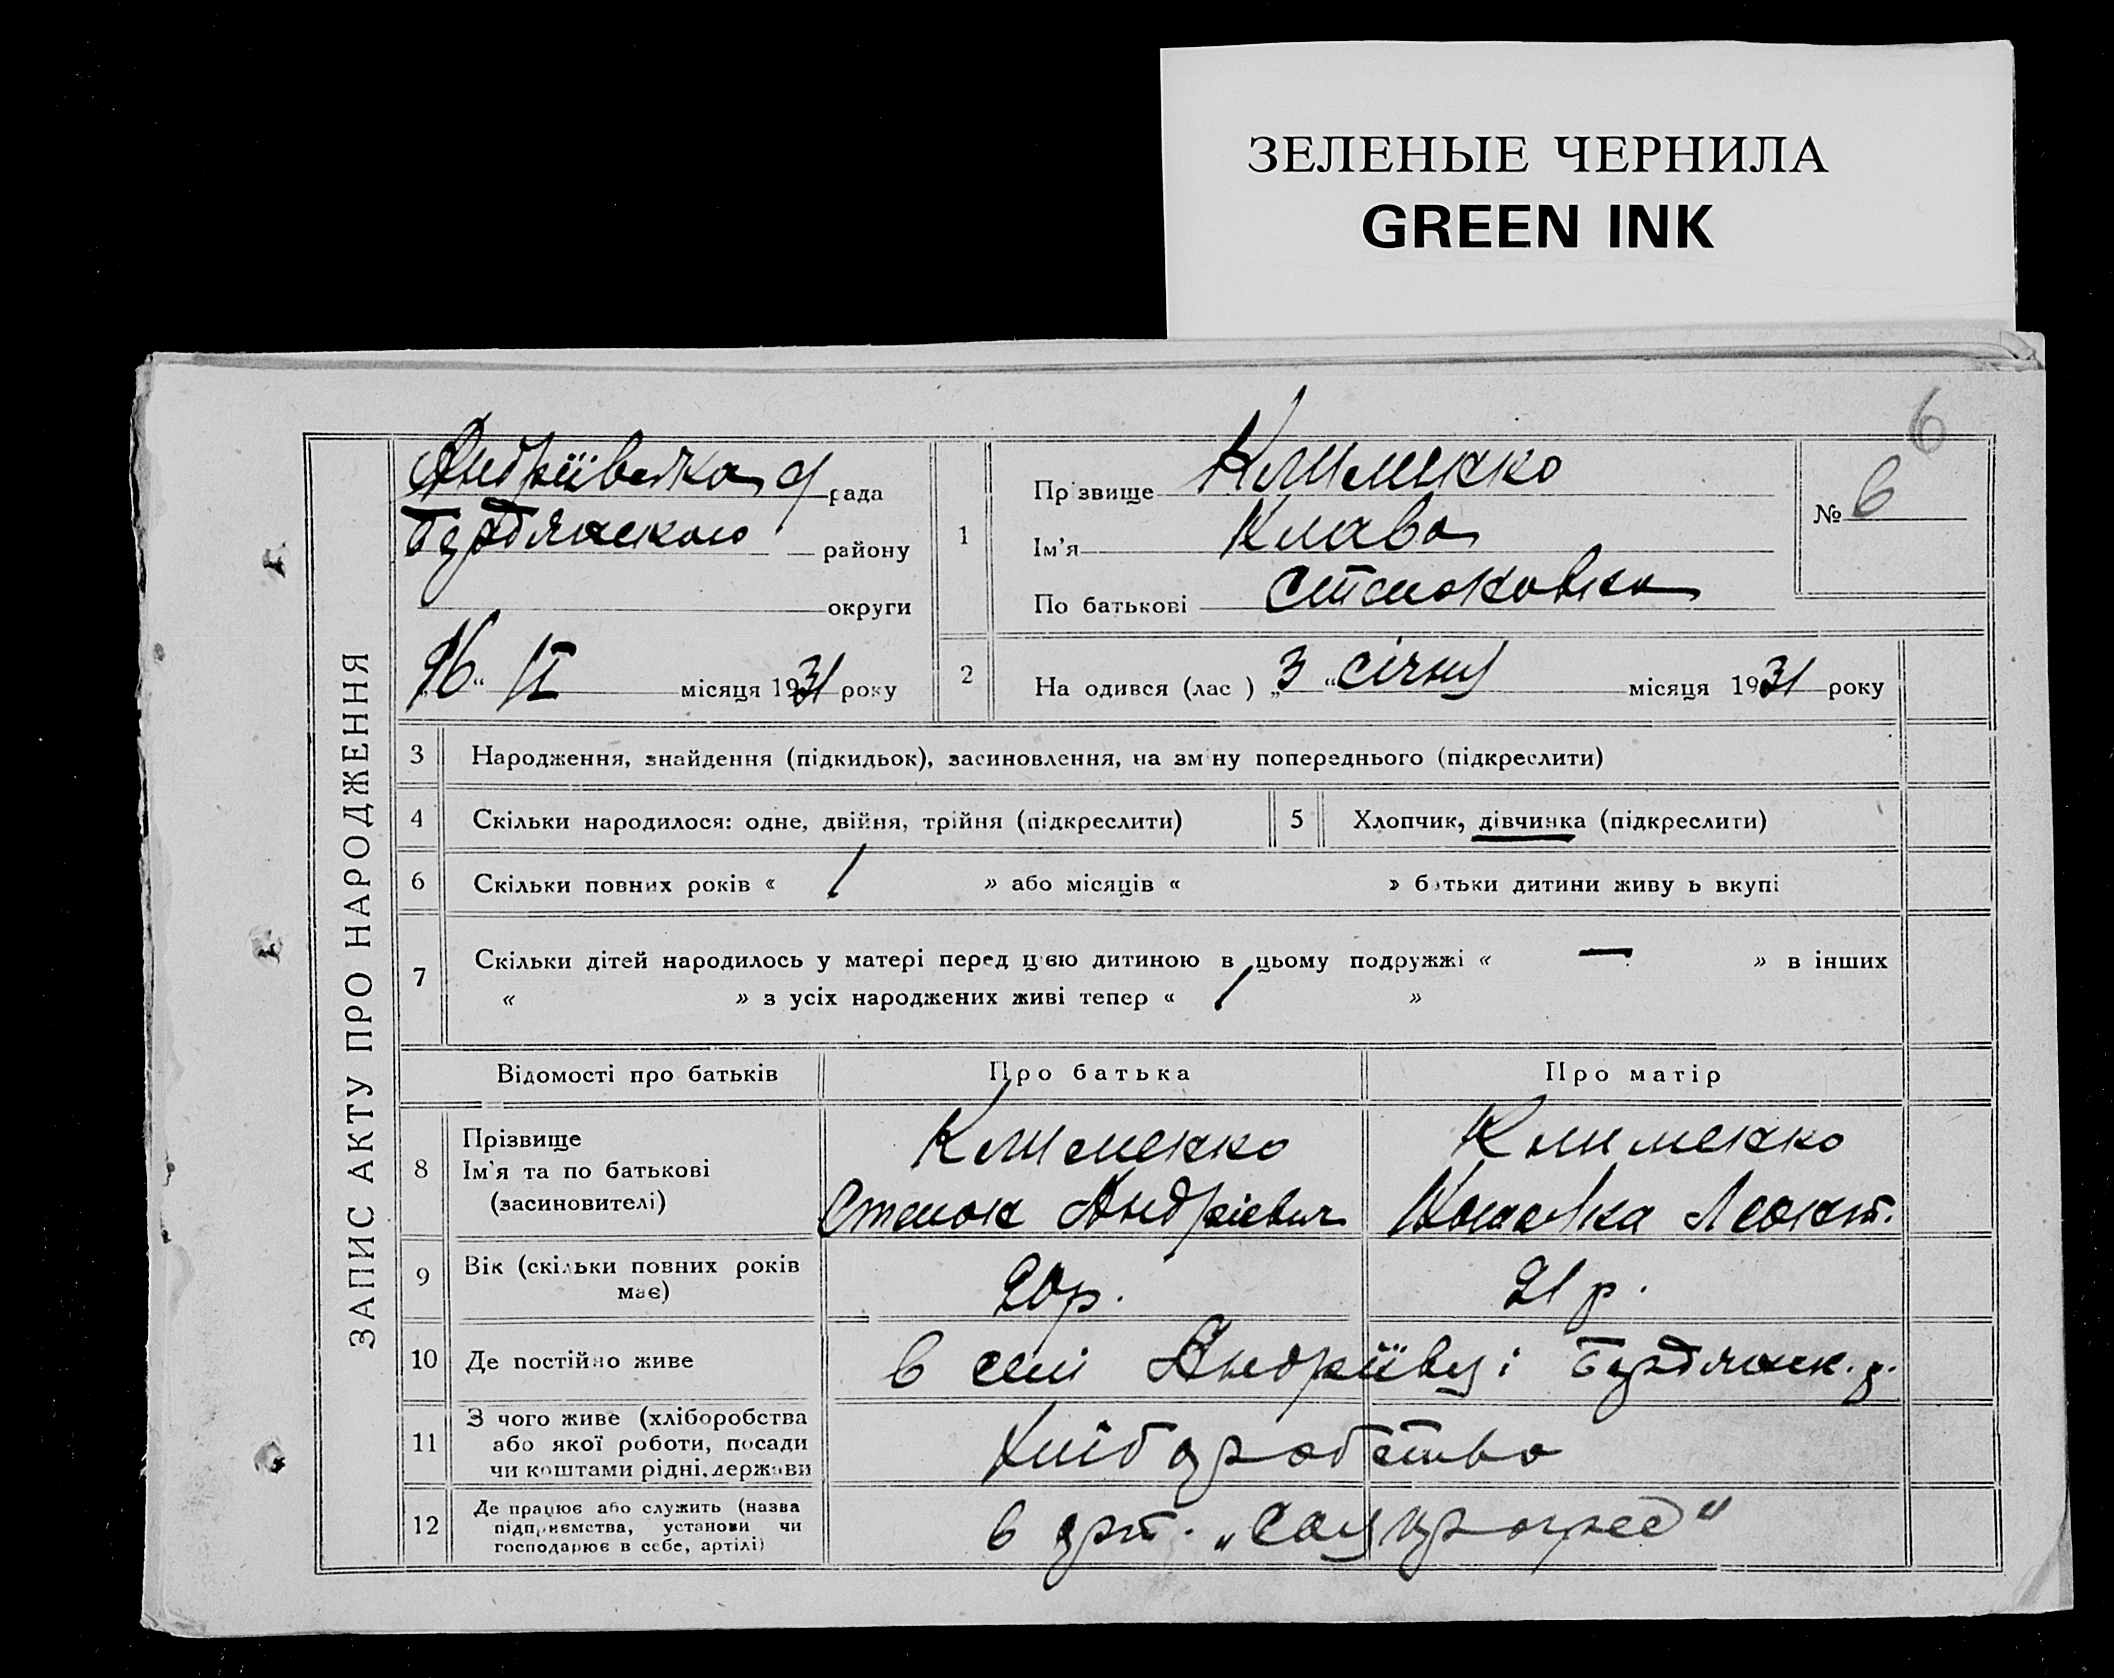 ЗЕЛЕНЫЕ ЧЕРНИЛА
GREEN INK
6
ЗАПИС АКТУ ПРО НАРОДЖЕННЯ
Андріївська с/рада
Бердянського району
округи
"16" II місяця 1931 року
1
Прізвище Клименко
Ім'я Клава
По батькові Степановна
№ 6
2
На одився (лас ) „3 “ січня місяця 1931 року
3 Народження, знайдення (підкидьок), засиновлення, на зм ну попереднього (підкреслити)
4 Скільки народилося: одне, двійня, трійня (підкреслити)
5 Хлопчик, дівчинка (підкреслити)
6 Скільки повних років « 1 » або місяців « » батьки дитини живу ь вкупі
7 Скільки дітей народилось у матері перед цією дитиною в цьому подружжі « — » в інших
« » з усіх народжених живі тепер « 1 »
Відомості про батьків Про батька Про матір
8 Прізвище
Ім'я та по батькові
(засиновителі)
Клименко
Степан Андрієвич
Клименко
9 Вік (скільки повних років
має)
20 р.
21 р.
10 Де постійно живе
в селі Андріївці Бердянск. р.
11 З чого живе (хліборобства
або якої роботи, посади
чи коштами рідні, держави
Хліборобство
12 Де працює або служить (назва
підприємства, установи чи
господарює в себе, артілі)
в арт.